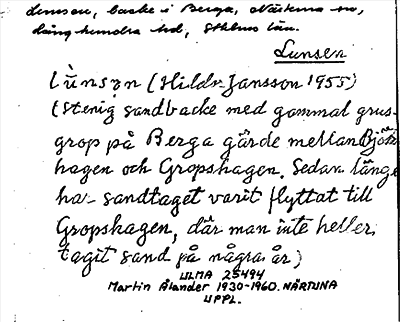 Lunsen, backe i Berga, Närtuna sn,
Långhundra hd, Sthlms län.
Lunsen
lùnsən (Hildur Jansson 1955)
(Stenig sandbacke med gammal grus-
grop på Berga gärde mellan Björk-
hagen och Gropshagen. Sedan länge
har sandtaget varit flyttat till
Gropshagen, där man inte heller
tagit sand på några år)
ULMA 25494
Martin Ålander 1930-1960. NÄRTUNA
UPPL.